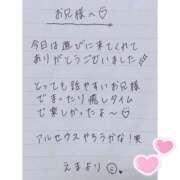 お兄様へ♡
今日は遊びに来てくれて
ありがとうございました
とっても話やすいお兄様
でまったり癒しタイム
で楽しかったよ〜♡
アルセウスやろうかな!笑
えまより